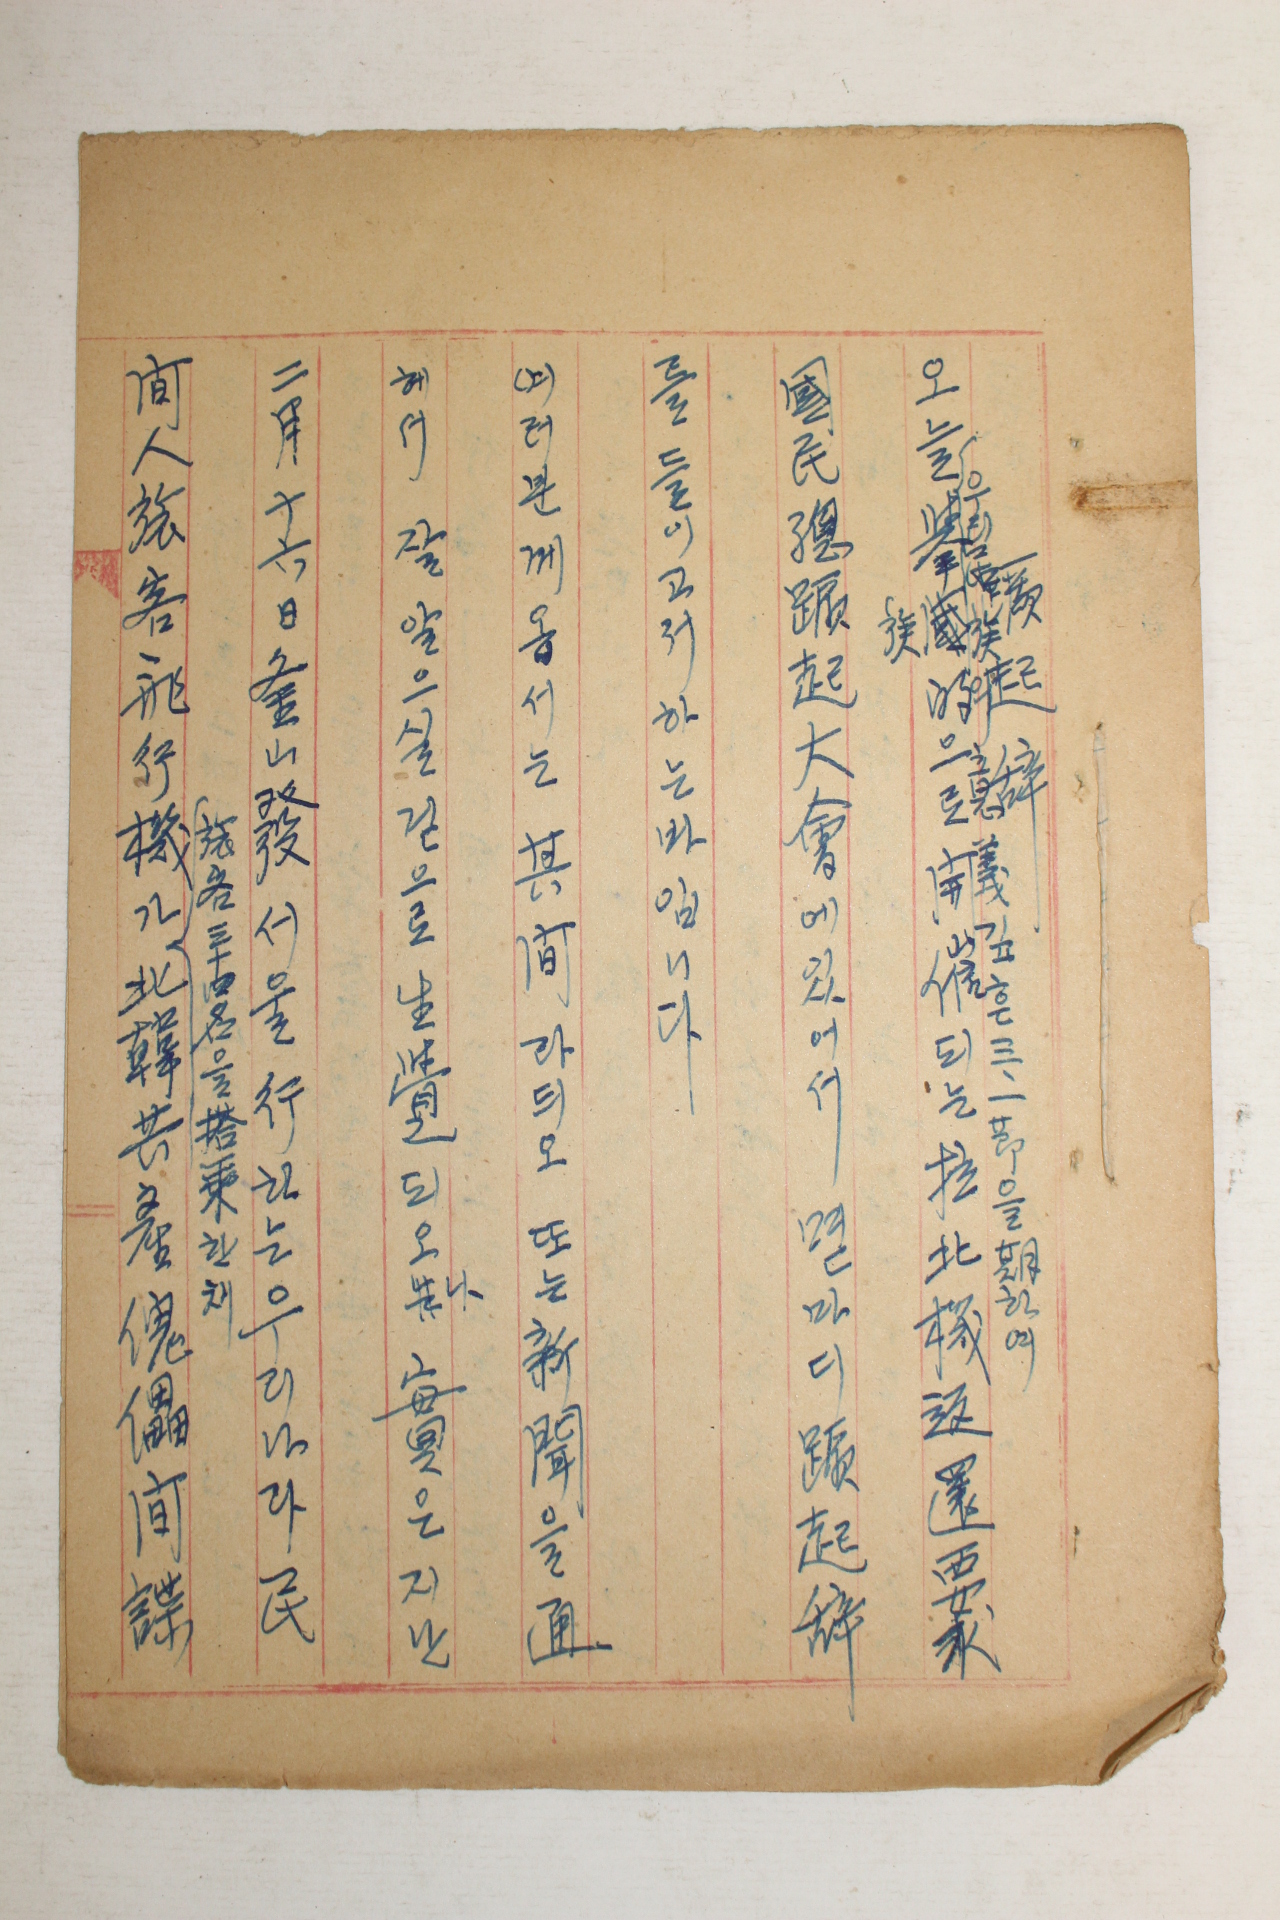 蹶起辞
우리 民族 意義 깊흔 三、一節을 期하여
오늘 擧國的으로 開催되는 拉北機返還要求
族
國民總蹶起大會에있어서 몇마디 蹶起辞
들 들이고저하는바임니다
(여러분께옵서는 其間 라듸오 또는 新聞을 通
헤서 잘 알으실길으로 生覺되오나 事實은 지난
二月十六日 釜山發 서울行하는 우리나라 民
張客三十四名을 搭乘한채
間人張客飛行機가 北韓共産傀儡間諜